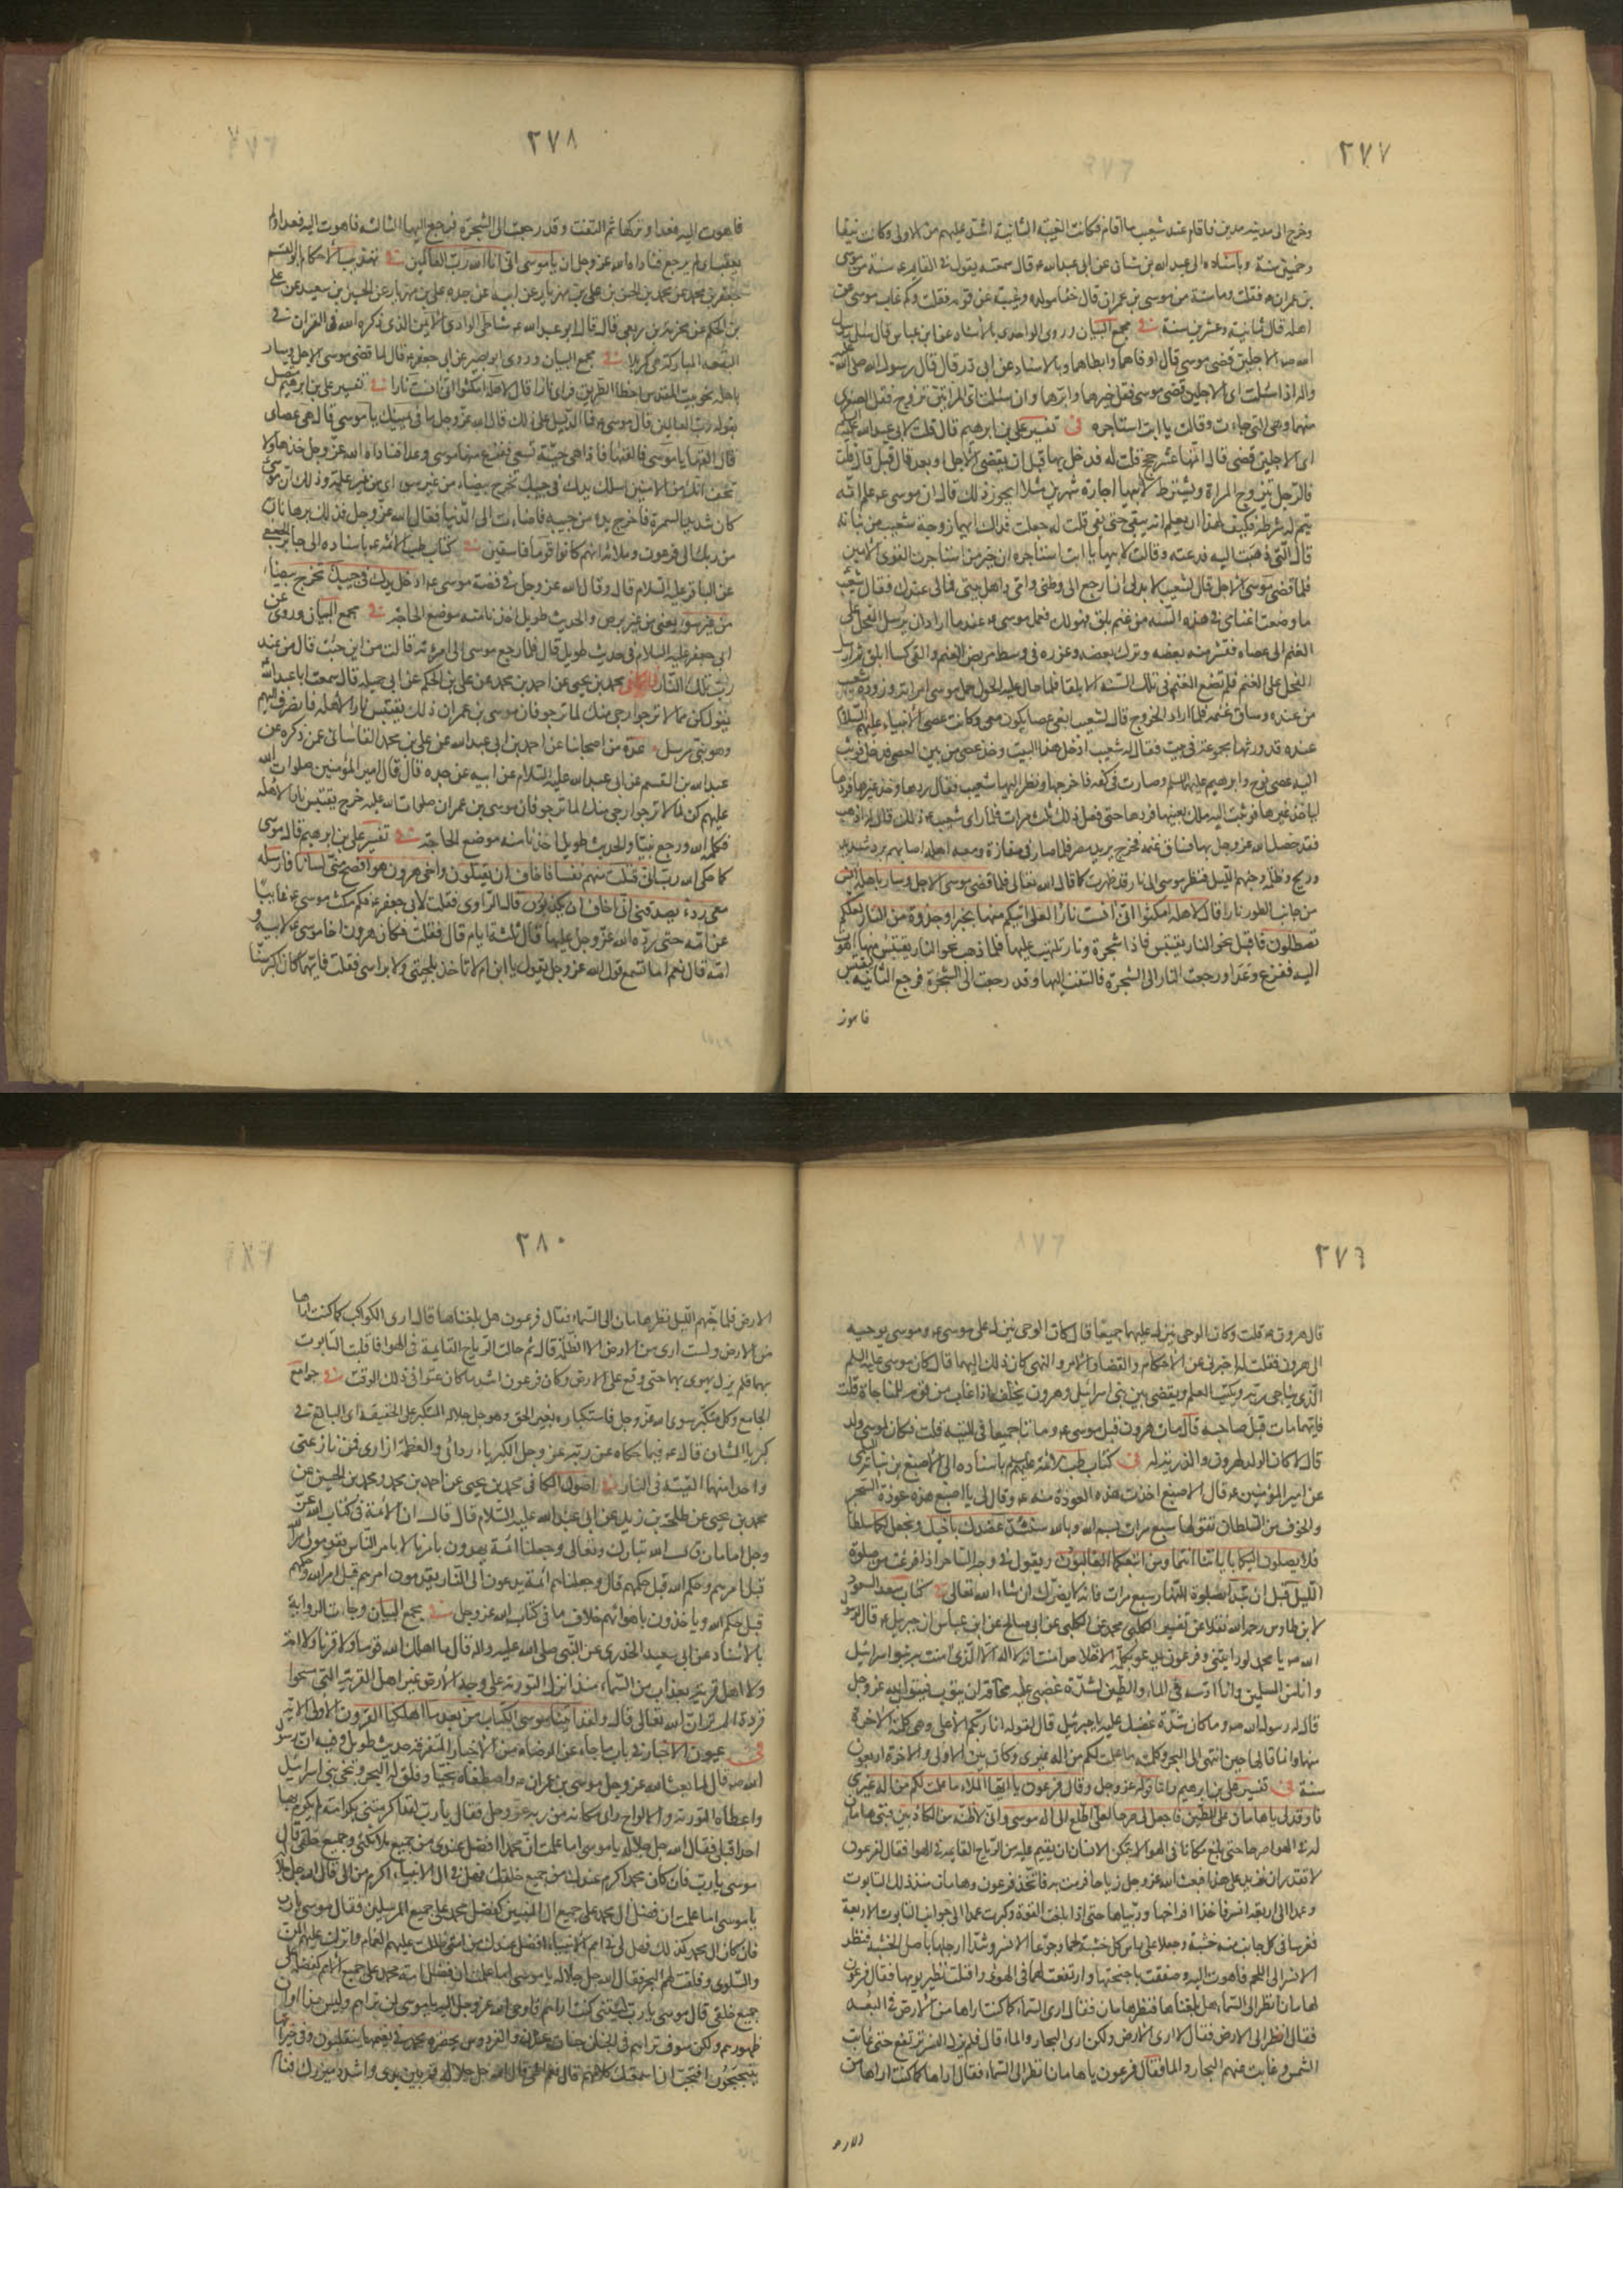 ٢٧٧
وخرج الى مدينة مدين فاقام عند شعيب ما اقام فكانت الغيبة الثانية اشد عليهم من الاولى وكانت نيفا
وخمسين سنة وباسناده الى عبد الله بن سنان عن ابى عبد الله ع قال سمعته يقول فى القايم ع سنة من موسى
بن عمران ع فقلت وما سنة من موسى بن عمران قال خفا مولده وغيبته عن قومه فقلت وكم غاب موسى عن
اهله قال ثمانية وعشرين سنة فى مجمع البيان وروى الواحدى بالاسناد عن ابن عباس قال سئل رسول
الله ص اى الاجلين قضى موسى قال اوفاهما وابطاهما وبالاسناد عن ابى ذر قال قال رسول الله صلى الله عليه
واله اذا سئلت اى الاجلين قضى موسى فقل خيرهما وابرهما وان سئلت اى المراتين تزوج فقل الصغرى
منهما وهى التى جاءت وقالت يا ابت استاجره فى تفسير على بن ابرهيم قال قلت لابى عبد الله عليه السلم
اى الاجلين قضى قال اتمها عشر حجج قلت له فدخل بها قبل ان يقضى الاجل او بعد قال قبل قال قلت
فالرجل يتزوج المراة ويشترط لابيها اجارة شهرين مثلا ايجوز ذلك قال ان موسى ع علم انه
يتم له شرطه فكيف لهذا ان يعلم انه يبقى حتى يفى قلت له جعلت فداك ايهما زوجة شعيب من بناته
قال التى ذهبت اليه فدعته وقالت لابيها يا ابت استاجره ان خير من استاجرت القوى الامين
فلما قضى موسى الاجل قال لشعيب لا بد لى ان ارجع الى وطنى وامى واهل بيتى فمالى عندك فقال شعيب
ما وضعت اغنامى فى هذه السنة من غنم بلق فهو لك فعمد موسى ع عند ما اراد ان يرسل الفحل على
الغنم الى عصاه فقشر منه بعضه وترك بعضه وغرزه فى وسط مربض الغنم والقى كسا ابلق ثم ارسل
الفحل على الغنم فلم تضع الغنم فى تلك السنة الا بلقا فلما حال عليه الحول حمل موسى امراته وزوده شعيب
من عنده وساق غنمه فلما اراد الخروج قال لشعيب ابغى عصا يكون معى وكانت عصى الانبياء عليهم السلام
عنده قد ورثها مجموعة فى بيت فقال له شعيب ادخل هذا البيت وخذ عصى من بين العصى فدخل فوثبت
اليه عصى نوح وابرهيم عليهما السلم وصارت فى كفه فاخرجها ونظر اليها شعيب فقال ردها وخذ غيرها فردها
لياخذ غيرها فوثبت اليه تلك بعينها فردها حتى فعل ذلك ثلث مرات فلما راى شعيب ع ذلك قال له اذهب
فقد خصك الله عز وجل بها فساق غنمه فخرج يريد مصر فلما صار فى مفازة ومعه اهله اصابهم برد شديد
وريح وظلمة وجنهم الليل فنظر موسى الى نار قد ظهرت كما قال الله تعالى فلما قضى موسى الاجل وسار باهله انس
من جانب الطور نارا قال لاهله امكثوا انى انست نارا لعلى اتيكم منها بخبر او جذوة من النار لعلكم
تصطلون فاقبل نحو النار يقتبس فاذا شجرة ونار تلتهب عليها فلما ذهب نحو النار يقتبس منها اهوت
اليه ففزع وعدا ورجعت النار الى الشجرة فالتفت اليها وقد رجعت الى الشجرة فرجع الثانية يقتبس
٢٧٨
فاهوت اليه فعدا وتركها ثم التفت وقد رجعت الى الشجرة فرجع اليها الثالثة فاهوت اليه فعدا ولم
يعقب اى لم يرجع فناداه الله عز وجل ان يا موسى انى انا الله رب العالمين فى تهذيب الاحكام ابو القسم
جعفر بن محمد عن محمد بن الحسن بن على بن مهزيار عن ابيه عن جده على بن مهزيار عن الحسين بن سعيد عن على
بن الحكم عن مخرمة بن ربعى قال قال ابو عبد الله ع شاطى الوادى الايمن الذى ذكره الله فى القران فى
البقعة المباركة هى كربلا فى مجمع البيان وروى ابو بصير عن ابى جعفر ع قال لما قضى موسى الاجل وسار
باهله نحو بيت المقدس اخطا الطريق فراى نارا قال لاهله امكثوا انى انست نارا فى تفسير على بن ابرهيم متصل
بقوله رب العالمين قال موسى ع فما الدليل على ذلك قال الله عز وجل ما فى يمينك يا موسى قال هى عصاى
قال القها يا موسى فالقيها فاذا هى حية تسعى ففزع منها موسى وعدا فناداه الله عز وجل خذها ولا
تخف انك من الامنين اسلك يدك فى جيبك تخرج بيضاء من غير سوء اى من غير علة وذلك ان موسى
كان شديد السمرة فاخرج يده من جيبه فاضاءت له الدنيا فقال الله عز وجل فذلك برهانان
من ربك الى فرعون وملائه انهم كانوا قوما فاسقين فى كتاب طب الائمة ع باسناده الى جابر الجعفى
عن الباقر عليه السلام قال وقال الله عز وجل فى قصة موسى ع ادخل يدك فى جيبك تخرج بيضاء
من غير سوء يعنى من غير برص والحديث طويل اخذنا منه موضع الحاجة فى مجمع البيان وروى عن
ابى جعفر عليه السلام فى حديث طويل قال فلما رجع موسى الى امرئته قالت من اين جئت قال من عند
رب تلك النار محمد بن يحيى عن احمد بن محمد عن على بن الحكم عن ابى جميله قال سمعت ابا عبد الله
يقول كن لما لا ترجوا ارجى منك لما ترجو فان موسى بن عمران ذهب ليقتبس نارا لاهله فانصرف اليهم
وهو نبى مرسل عدة من اصحابنا عن احمد بن ابى عبد الله عن على بن محمد القاسانى عمن ذكره عن
عبد الله بن القسم عن ابى عبد الله عليه السلام عن ابيه عن جده قال قال امير المؤمنين صلوات الله
عليهم كن لما لا ترجوا ارجى منك لما ترجو فان موسى بن عمران صلوات الله عليه خرج يقتبس نارا لاهله
فكلمه الله ورجع نبيا والحديث طويل اخذنا منه موضع الحاجة فى تفسير على بن ابرهيم قال موسى
كما حكى الله رب انى قتلت منهم نفسا فاخاف ان يقتلون واخى هرون هو افصح منى لسانا فارسله
معى ردء يصدقنى انى اخاف ان يكذبون قال الراوى فقلت لابى جعفر ع فكم مكث موسى ع غايبا
عن امه حتى رده الله عز وجل عليها قال ثلثة ايام قال فقلت فكان هرون اخا موسى ع لابيه و
امه قال نعم اما تسمع قول الله عز وجل يقول يا ابن ام لا تاخذ بلحيتى ولا براسى فقلت فايهما كان اكبر سنا
٢٧٩
قال هرون ع قلت وكان الوحى ينزل عليهما جميعا قال كان الوحى ينزل على موسى ع وموسى يوحيه
الى هرون فقلت له اخبرنى عن الاحكام والقضا والامر والنهى كان ذلك اليهما قال كان موسى عليه السلم
الذى يناجى ربه ويكتب العلم ويقضى بين بنى اسرائيل وهرون يخلفه اذا غاب من قومه للمناجاة قلت
فايهما مات قبل صاحبه قال مات هرون قبل موسى ع وماتا جميعا فى التيه قلت فكان لموسى ولد
قال لا كان الولد لهرون والذرية له فى كتاب طب الائمة عليهم السلم باسناده الى الاصبغ بن نباته
عن امير المؤمنين ع قال الاصبغ اخذت هذه العوذة منه ع وقال لى يا اصبغ هذه عوذة السحر
والخوف من السلطان تقولها سبع مرات بسم الله وبالله سنشد عضدك باخيك ونجعل لكما سلطانا
فلا يصلون اليكما باياتنا انتما ومن اتبعكما الغالبون ويقول فى وجه الساحر اذا فرغت من صلوة
الليل قبل ان تبدا بصلوة النهار سبع مرات فانه لا يضرك ان شاء الله تعالى فى كتاب سعد السعود
لابن طاوس رحمه الله نقلا عن تفسير الكلبى محمد عن الكلبى عن ابى صالح عن ابن عباس ان جبريل ع قال لرسول
الله ص يا محمد لو رايتنى وفرعون يدعو بكلمة الاخلاص امنت انه لا اله الا الذى امنت به بنو اسرائيل
وانا من المسلمين وانا ادسه فى الماء والطين لشدة غضبى عليه مخافة ان يتوب فيتوب الله عز وجل
قال له رسول الله ص وما كان شدة غضبك عليه يا جبرئيل قال لقوله انا ربكم الاعلى وهى كلمته الاخرة
منهما وانما قالها حين انتهى الى البحر وكلمته ما علمت لكم من اله غيرى وكان بين الاولى والاخرة اربعون
سنة فى تفسير على بن ابرهيم واما قوله عز وجل وقال فرعون يا ايها الملاء ما علمت لكم من اله غيرى
فاوقد لى يا هامان على الطين فاجعل لى صرحا لعلى اطلع الى اله موسى وانى لاظنه من الكاذبين فبنى هامان
له فى الهوا صرحا حتى بلغ مكانا فى الهوا لا يتمكن الانسان ان يقيم عليه من الرياح القايمة فى الهوا فقال لفرعون
لا نقدر ان نزيد على هذا فبعث الله عز وجل رياحا فرمت به فاتخذ فرعون وهامان عند ذلك التابوت
وعمدا الى اربعة انسر فاخذا افراخها وربياها حتى اذا بلغت القوة وكبرت عمدا الى جوانب التابوت الاربعة
فغرسا فى كل جانب منه خشبة وجعلا على راس كل خشبة لحما وجوعا الانسر وشدا ارجلها باصل الخشبة فنظر
الانسر الى اللحم فاهوت اليه وصفقت باجنحتها وارتفعت بهما فى الهوى واقبلت تطير يومها فقال فرعون
لهامان انظر الى السماء هل بلغناها فنظر هامان فقال ارى السماء كما كنت اراها من الارض فى البعد
فقال انظر الى الارض فقال لا ارى الارض ولكن ارى البحار والماء قال فلم يزل النسر ترتفع حتى غابت
الشمس وغابت عنهم البحار والماء فقال فرعون يا هامان انظر الى السماء فقال اراها كما كنت اراها من
الارض
٢٨٠
الارض فلما جنهم الليل نظر هامان الى السماء فقال فرعون هل بلغناها قال ارى الكواكب كما كنت اراها
من الارض ولست ارى من الارض الا الظلمة قال ثم حالت الرياح القايمة فى الهوا فاقبلت التابوت
بهما فلم يزل يهوى بهما حتى وقع على الارض وكان فرعون اشد ما كان عتوا فى ذلك الوقت فى جوامع
الجامع وكل متكبر سوى الله عز وجل فاستكباره بغير الحق وهو جل جلاله المتكبر على الحقيقة اى البالغ فى
كبرياء الشان قال ع فيما حكاه عن ربه عز وجل الكبرياء ردائى والعظمة ازارى فمن نازعنى
واحدا منهما القيته فى النار فى اصول الكافى محمد بن يحيى عن احمد بن محمد ومحمد بن الحسين عن
محمد بن يحيى عن طلحة بن زيد عن ابى عبد الله عليه السلام قال قال ان الائمة فى كتاب الله عز
وجل امامان قال الله تبارك وتعالى وجعلنا ائمة يهدون بامرنا لا بامر الناس يقدمون امر الله
قبل امرهم وحكم الله قبل حكمهم قال وجعلناهم ائمة يدعون الى النار يقدمون امرهم قبل امر الله وحكمهم
قبل حكم الله وياخذون باهوائهم خلاف ما فى كتاب الله عز وجل فى مجمع البيان وجاءت الرواية
بالاسناد عن ابى سعيد الخدرى عن النبى صلى الله عليه واله قال ما اهلك الله قوما ولا قرنا ولا امة
ولا اهل قرية بعذاب من السماء منذ انزل التورية على وجه الارض غير اهل القرية التى مسخوا
قردة الم تر ان الله تعالى قال ولقد اتينا موسى الكتاب من بعد ما اهلكنا القرون الاولى الاية
فى عيون الاخبار فى باب ما جاء عن الرضا ع من الاخبار المتفرقة حديث طويل وفيه ان رسول
الله ص قال لما بعث الله عز وجل موسى بن عمران ع واصطفاه نجيا وفلق له البحر ونجى بنى اسرائيل
واعطاه التورية والالواح راى مكانه من ربه عز وجل فقال يا رب لقد اكرمتنى بكرامة لم تكرم بها
احدا قبلى فقال الله جل جلاله يا موسى اما علمت ان محمدا افضل عندى من جميع ملائكتى وجميع خلقى قال
موسى يا رب فان كان محمد اكرم عندك من جميع خلقك فهل فى ال الانبياء اكرم من الى قال الله جل جلاله
يا موسى اما علمت ان فضل ال محمد على جميع ال النبيين كفضل محمد على جميع المرسلين فقال موسى يا رب
فان كان ال محمد كذلك فهل فى امم الانبياء افضل عندك من امتى ظللت عليهم الغمام وانزلت عليهم المن
والسلوى وفلقت لهم البحر فقال الله جل جلاله يا موسى اما علمت ان فضل امة محمد على جميع الامم كفضله على
جميع خلقى قال موسى يا رب ليتنى كنت اراهم فاوحى الله عز وجل اليه يا موسى لن تراهم وليس هذا اوان
ظهورهم ولكن سوف تراهم فى الجنان جنات عدن والفردوس بحضرة محمد فى نعيمها يتقلبون وفى خيراتها
يتبحبحون افتحب ان اسمعك كلامهم قال نعم الهى قال الله جل جلاله قم بين يدى واشدد ميزرك قيام